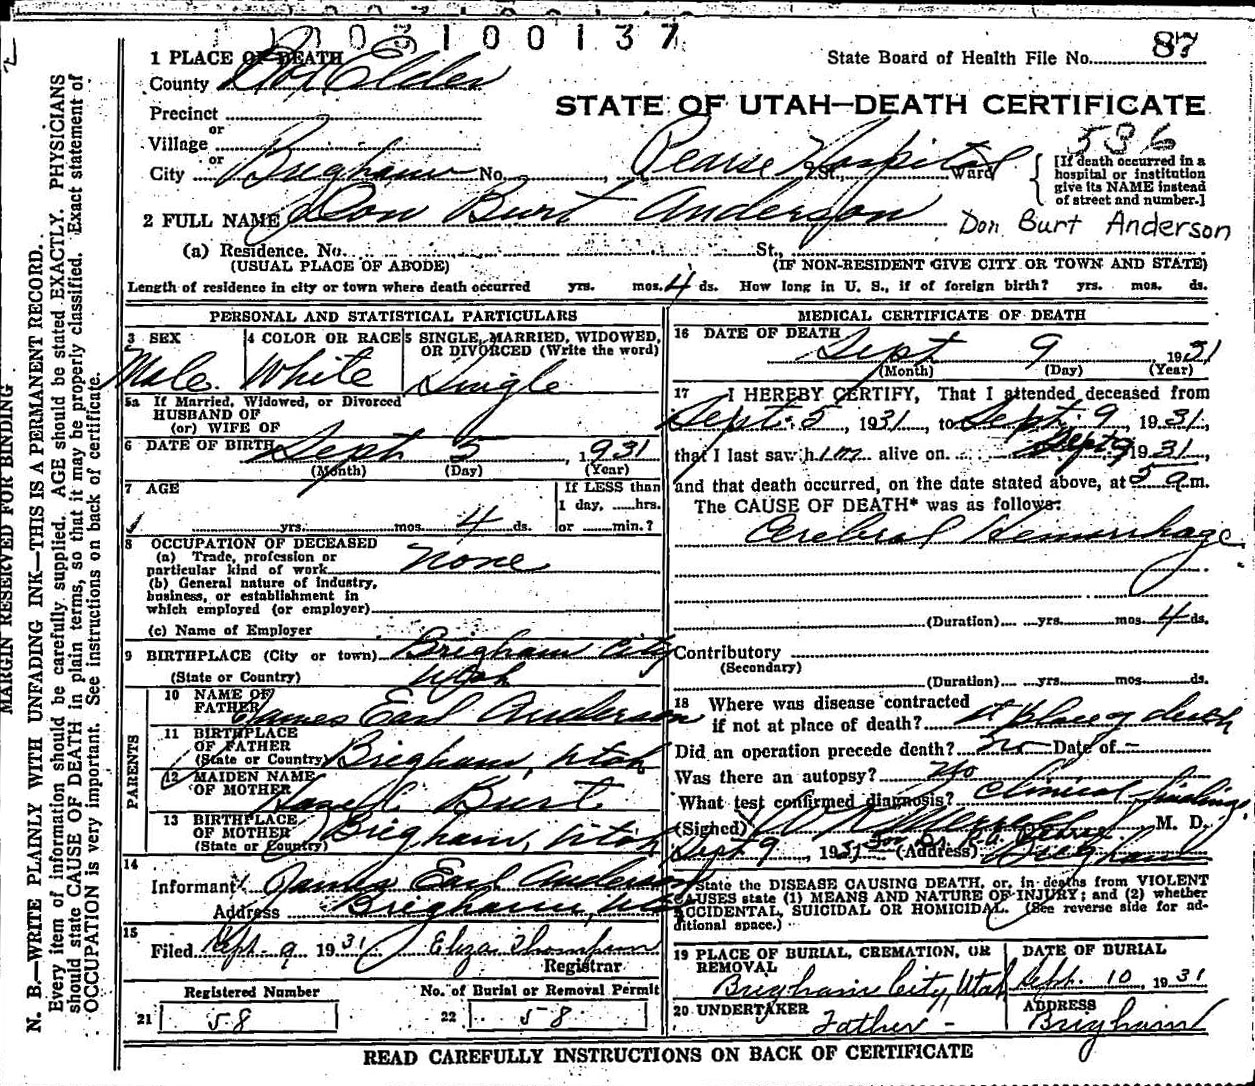 1003100137
1 PLACE OF DEATH
State Board of Health File No. 87
County Box Elder
STATE OF UTAH—DEATH CERTIFICATE
Precinct
or
Village
536
or
City Brigham No. , Pearse Hospital St., Ward
[If death occurred in a
hospital or institution
give its NAME instead
of street and number.]
2 FULL NAME Don Burt Anderson
Don Burt Anderson
(a) Residence. No. St.,
(USUAL PLACE OF ABODE) (IF NON-RESIDENT GIVE CITY OR TOWN AND STATE)
Length of residence in city or town where death occurred yrs. mos. 4 ds. How long in U. S., if of foreign birth? yrs. mos. ds.
PERSONAL AND STATISTICAL PARTICULARS
3 SEX
Male.
4 COLOR OR RACE
White
5 SINGLE, MARRIED, WIDOWED,
OR DIVORCED (Write the word)
Single
5a If Married, Widowed, or Divorced
HUSBAND OF
(or) WIFE OF
6 DATE OF BIRTH Sept 5, 1931
(Month) (Day) (Year)
7 AGE
yrs. mos. 4 ds.
If LESS than
1 day, ......hrs.
or ......min.?
8 OCCUPATION OF DECEASED
(a) Trade, profession or
particular kind of work None
(b) General nature of industry,
business, or establishment in
which employed (or employer)
(c) Name of Employer
9 BIRTHPLACE (City or town) Brigham City
(State or Country) Utah
PARENTS
10 NAME OF
FATHER James Earl Anderson
11 BIRTHPLACE
OF FATHER
(State or Country) Brigham, Utah
12 MAIDEN NAME
OF MOTHER Hazel Burt
13 BIRTHPLACE
OF MOTHER
(State or Country) Brigham, Utah
14
Informant James Earl Anderson
Address Brigham, Utah
15
Filed Sept. 9 1931 Eliza Thompson
Registrar
Registered Number
No. of Burial or Removal Permit
21 58
22 58
MEDICAL CERTIFICATE OF DEATH
16 DATE OF DEATH
Sept 9, 1931
(Month) (Day) (Year)
17 I HEREBY CERTIFY, That I attended deceased from
Sept. 5, 1931, to Sept. 9 1931,
that I last saw him alive on Sept 9 1931,
and that death occurred, on the date stated above, at 5 a.m.
The CAUSE OF DEATH* was as follows:
Cerebral Hemorrhage
(Duration) yrs. mos. 4 ds.
Contributory
(Secondary)
(Duration) yrs. mos. ds.
18 Where was disease contracted
if not at place of death? at place of death
Did an operation precede death? no Date of –
Was there an autopsy? No
What test confirmed diagnosis? Clinical findings.
(Signed) W R Merrell M. D.
Sept 9, 1931 for Dr. Pearse (Address) Brigham
*State the DISEASE CAUSING DEATH, or, in deaths from VIOLENT
CAUSES state (1) MEANS AND NATURE OF INJURY; and (2) whether
ACCIDENTAL, SUICIDAL OR HOMICIDAL. (See reverse side for ad-
ditional space.)
19 PLACE OF BURIAL, CREMATION, OR
REMOVAL
Brigham City, Utah
DATE OF BURIAL
Sept. 10, 1931
20 UNDERTAKER
Father -
ADDRESS
Brigham
READ CAREFULLY INSTRUCTIONS ON BACK OF CERTIFICATE
MARGIN RESERVED FOR BINDING
N. B.—WRITE PLAINLY WITH UNFADING INK—THIS IS A PERMANENT RECORD.
Every item of information should be carefully supplied. AGE should be stated EXACTLY. PHYSICIANS
should state CAUSE OF DEATH in plain terms, so that it may be properly classified. Exact statement of
OCCUPATION is very important. See instructions on back of certificate.